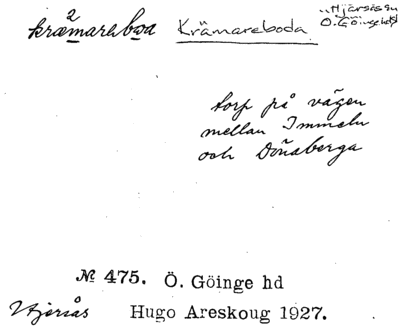 kræ²mareboa Krämareboda Hjärsås sn
Ö. Göinge hd
torp på vägen
mellan Immeln
och Dönaberga
№ 475. Ö. Göinge hd
Hjärsås Hugo Areskoug 1927.